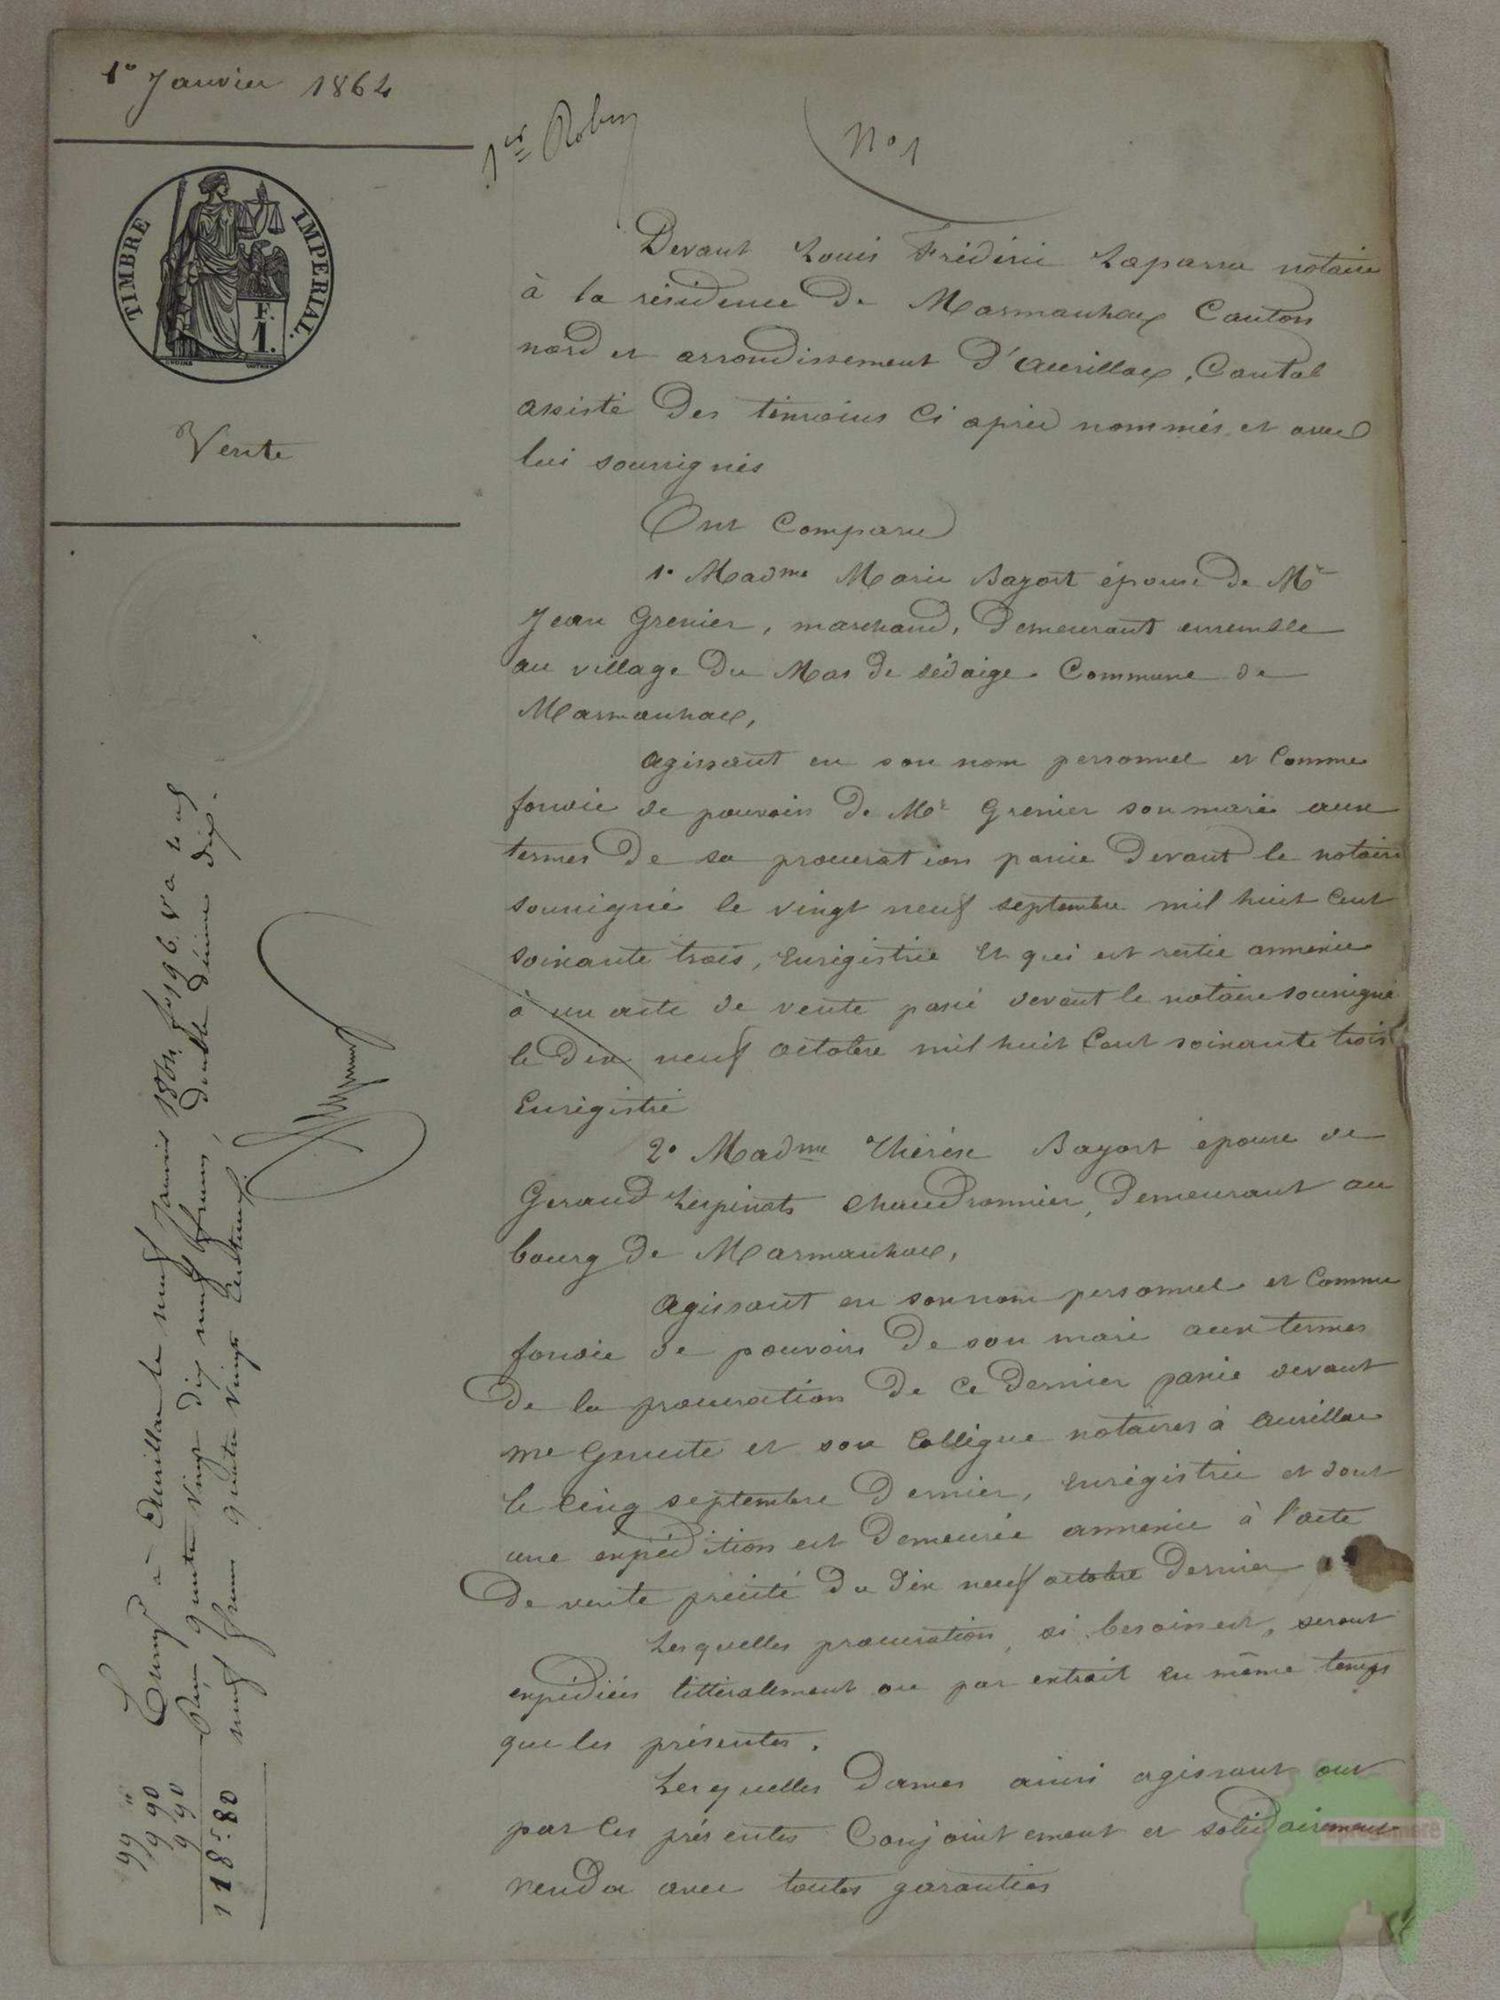 1er Janvier 1864
N° 1
TIMBRE IMPERIAL.
F.
1.
Vente
Devant Louis Frédéric Laparra notaire
à la résidence de Marmanhac Canton
nord et arrondissement d'Aurillac, Cantal
assisté des témoins ci après nommés et avec
lui soussignés
Ont Comparu
1° Madme Marie Bagost épouse de Mr
Jean Grenier, marchand, demeurant ensemble
au village du Mas de Sédaige Commune de
Marmanhac,
agissant en son nom personnel et comme
fondée de pouvoirs de Mr Grenier son mari aux
termes de sa procuration passée devant le notaire
soussigné le vingt neuf septembre mil huit cent
soixante trois, Enrégistrée et qui est restée annexée
à un acte de vente passé devant le notaire soussigné
le dix neuf octobre mil huit cent soixante trois
Enrégistré
2° Madme Thérèse Bagost épouse de
Geraud Lespinats chaudronnier, demeurant au
bourg de Marmanhac,
agissant en son nom personnel et comme
fondée de pouvoirs de son mari aux termes
de la procuration de ce dernier passée devant
me et son collègue notaires à Aurillac
le cinq septembre dernier, enrégistrée et dont
une expédition est demeurée annexée à l'acte
de vente précité du dix neuf octobre dernier
Lesquelles procuration, si besoin est, seront
expédiées littéralement ou par extrait en même temps
que les présentes.
Lesquelles dames ainsi agissant ont
par les présentes Conjointement et solidairement
vendu avec toutes garanties
à Aurillac le neuf Janvier 1864 fo 196 Vo
quatre vingt dix neuf francs, double décime dix
neuf francs quatre vingt centimes
99 "
9 90
9 90
118f.80